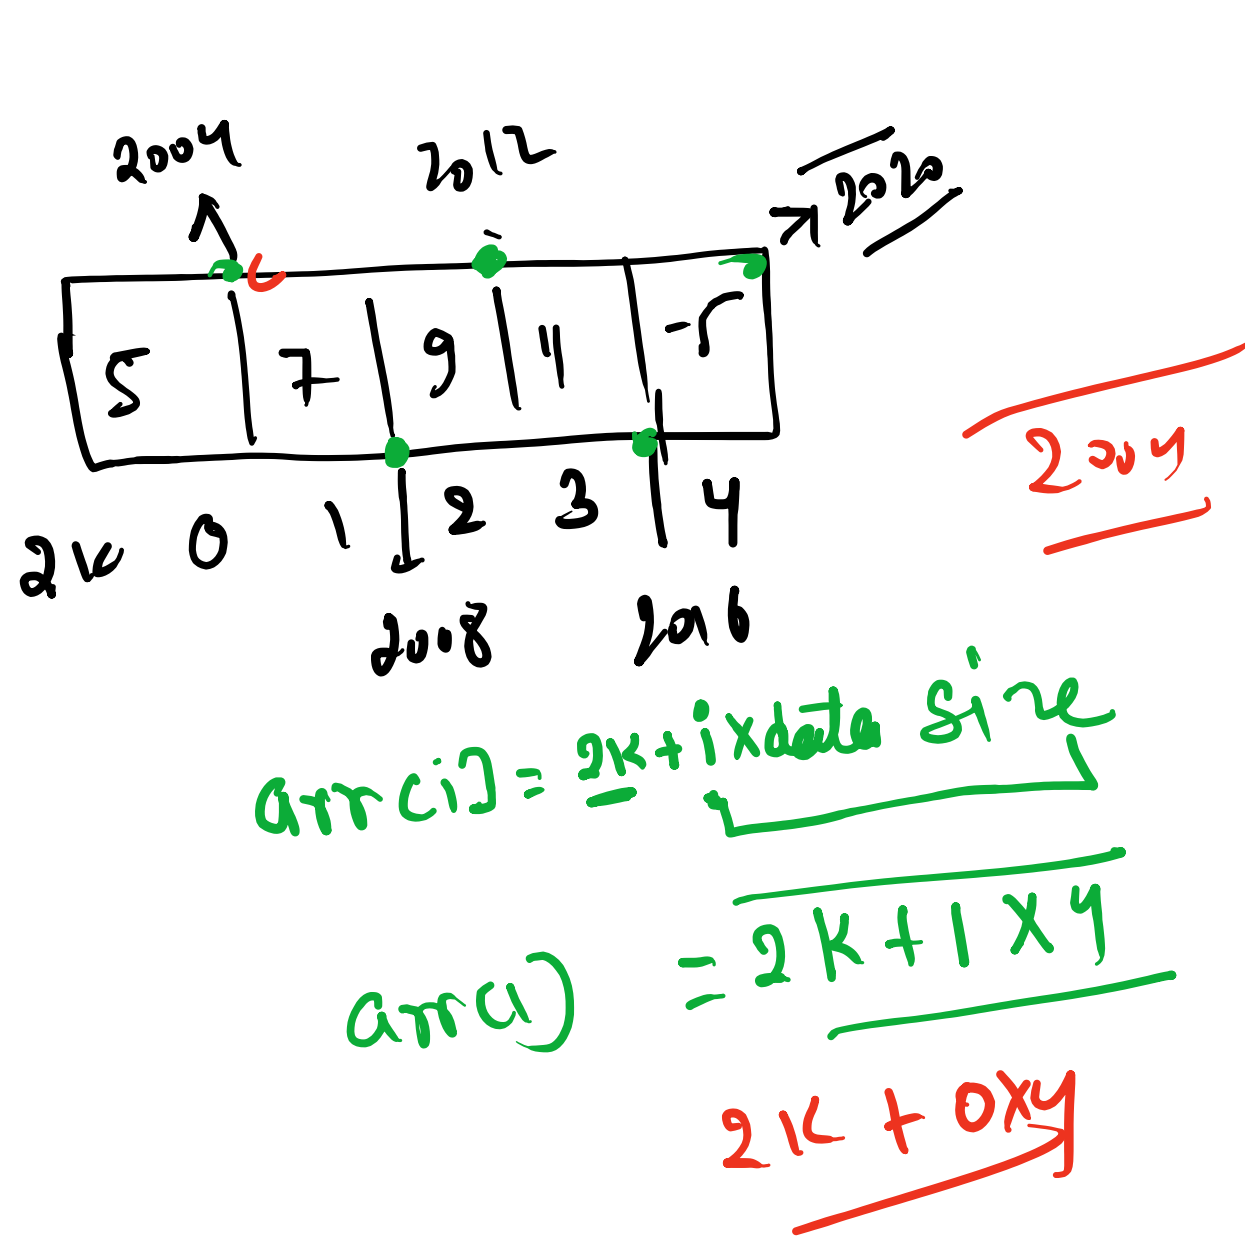 2004 2012 2020
5 7 9 11 -5
2004
2K 0 1 2 3 4
2008 2016
arr[i] = 2K + i x data size
arr(1) = 2K + 1 x 4
2K + 0x4